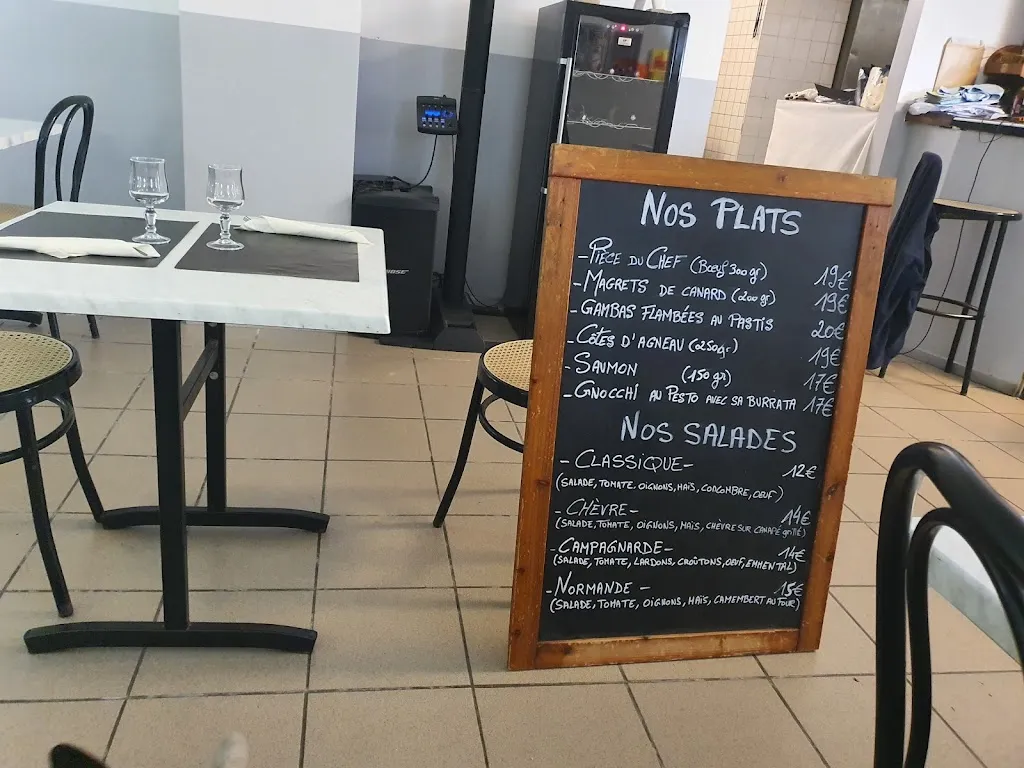 NOS PLATS
- PIÈCE DU CHEF (Bœuf 300 gr) 19€
- MAGRETS DE CANARD (200 gr) 19€
- GAMBAS FLAMBÉES AU PASTIS 20€
- CÔTES D'AGNEAU (250gr) 19€
- SAUMON (150 gr) 17€
- GNOCCHI AU PESTO AVEC SA BURRATA 17€
NOS SALADES
- CLASSIQUE - 12€
(SALADE, TOMATE, OIGNONS, MAÏS, CONCOMBRE, OEUF)
- CHÈVRE - 14€
(SALADE, TOMATE, OIGNONS, MAÏS, CHÈVRE SUR CANAPÉ grillé)
- CAMPAGNARDE - 14€
(SALADE, TOMATE, LARDONS, CROÛTONS, OEUF, EMMENTAL)
- NORMANDE - 15€
(SALADE, TOMATE, OIGNONS, MAÏS, CAMEMBERT AU FOUR)
BOSE